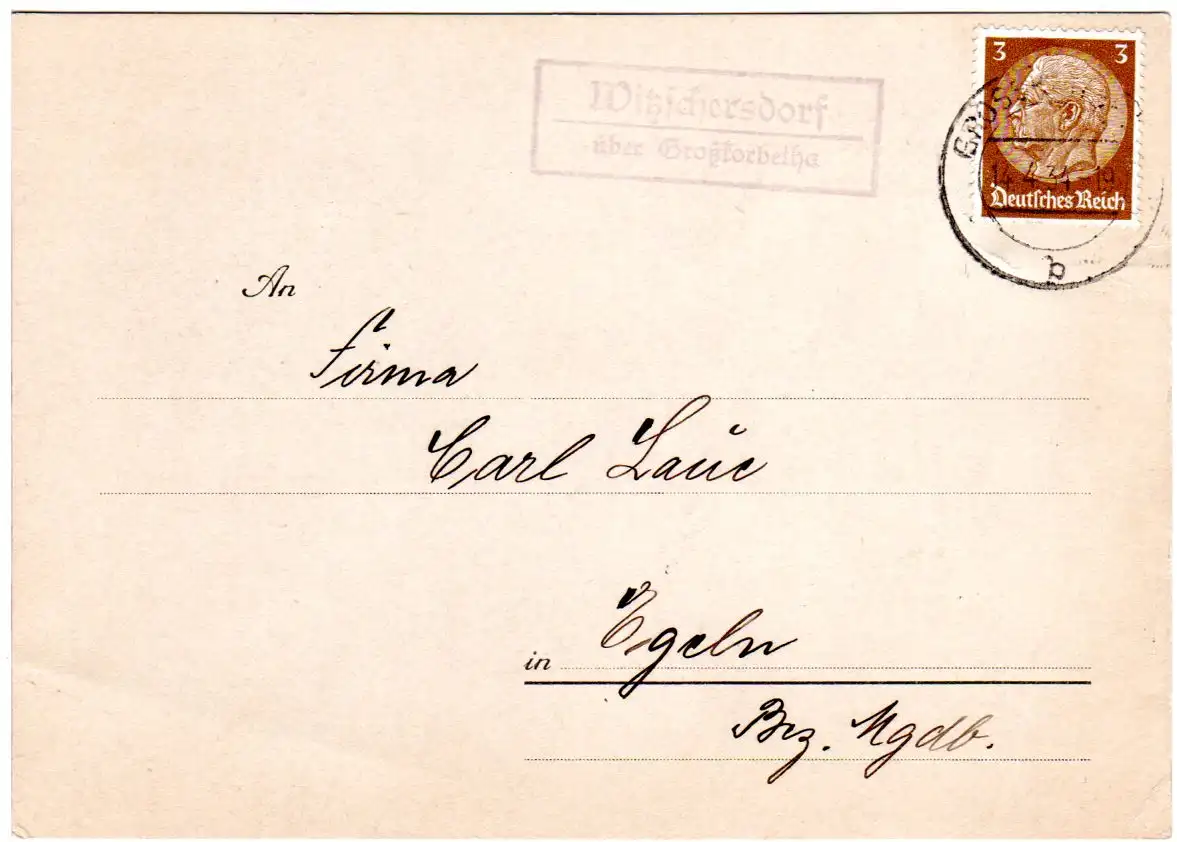 3 3
Witzschersdorf
über Großkorbetha
14.4.34-19
Deutsches Reich
b
An
Firma
Carl Laue
in Egeln
Brz. Mgdb.